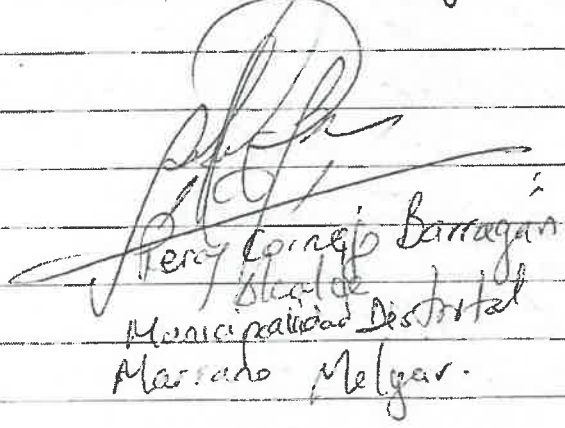 Percy Cornejo Barragán
Alcalde
Municipalidad Distrital
Mariano Melgar.